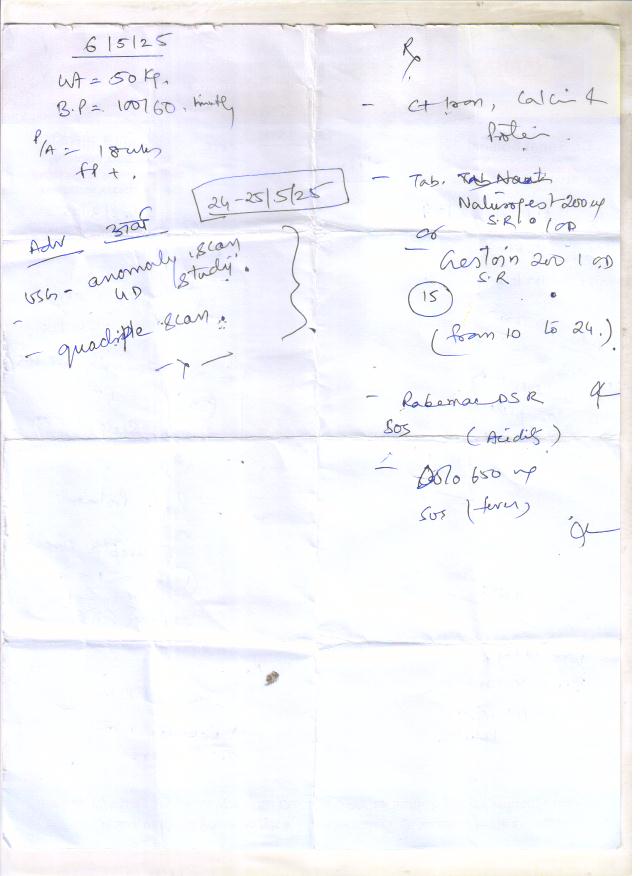 6/5/25
Wt = 50 Kg.
B.P = 100/60.
P/A = 18 wks
FP +.
24-25/5/25
Adv
USG - anomaly scan
UD study.
- quadriple scan.
Rx
- Ct Iron, Calcium &
Protein.
- Tab.
Naturogest 200 mg
S.R 1 OD
or
- Gestoin 200 1 OD
S.R
15
(from 10 to 24.)
- Rabemac DSR
SOS (Acidity)
- Dolo 650 mg
SOS (fever)